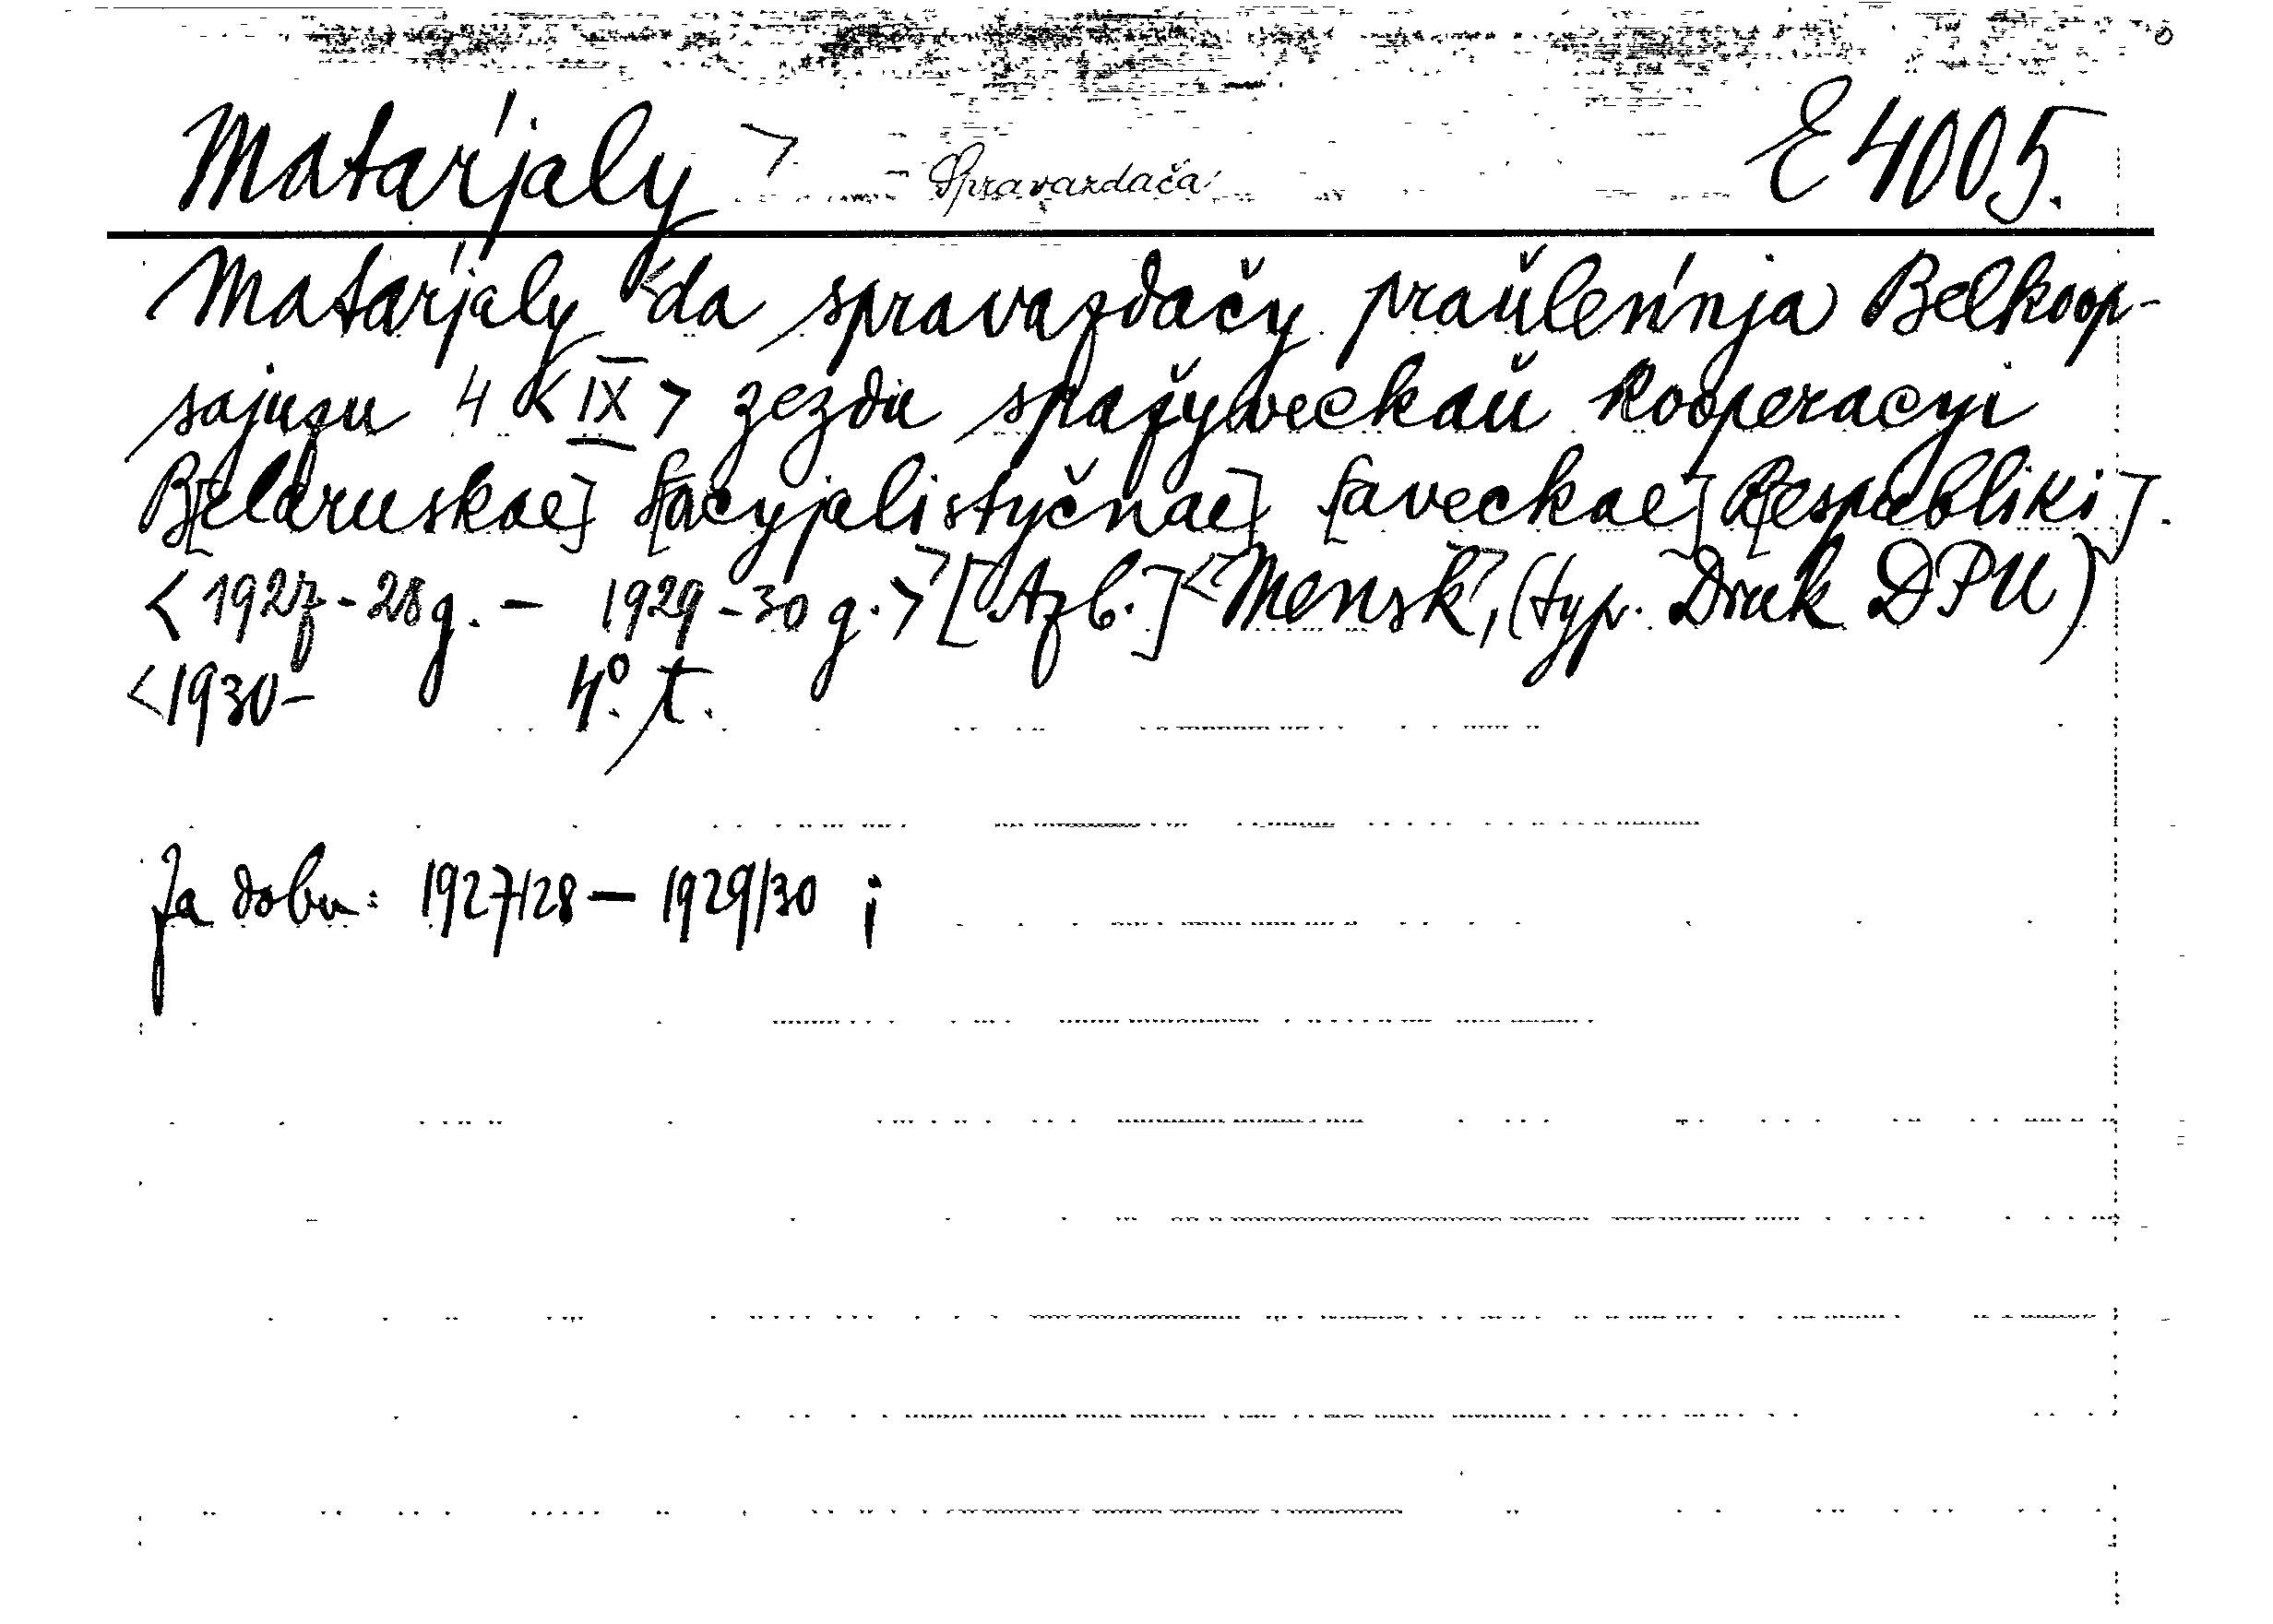 Matarjaly > Spravazdača E 4005.
Matarjaly <da spravazdačy praŭlen'nja Belkoop-
sajuzu 4 <IX> zezdu spažyveckaŭ kooperacyi
B[elaruskae] S[acyjalistyčnae] S[aveckae] R[espubliki].
<1927-28g. - 1929-30 g.> [Azb.] <Mensk>, (typ. Druk DPU)
<1930- 4°. t.
Za dobu: 1927/28 - 1929/30 i